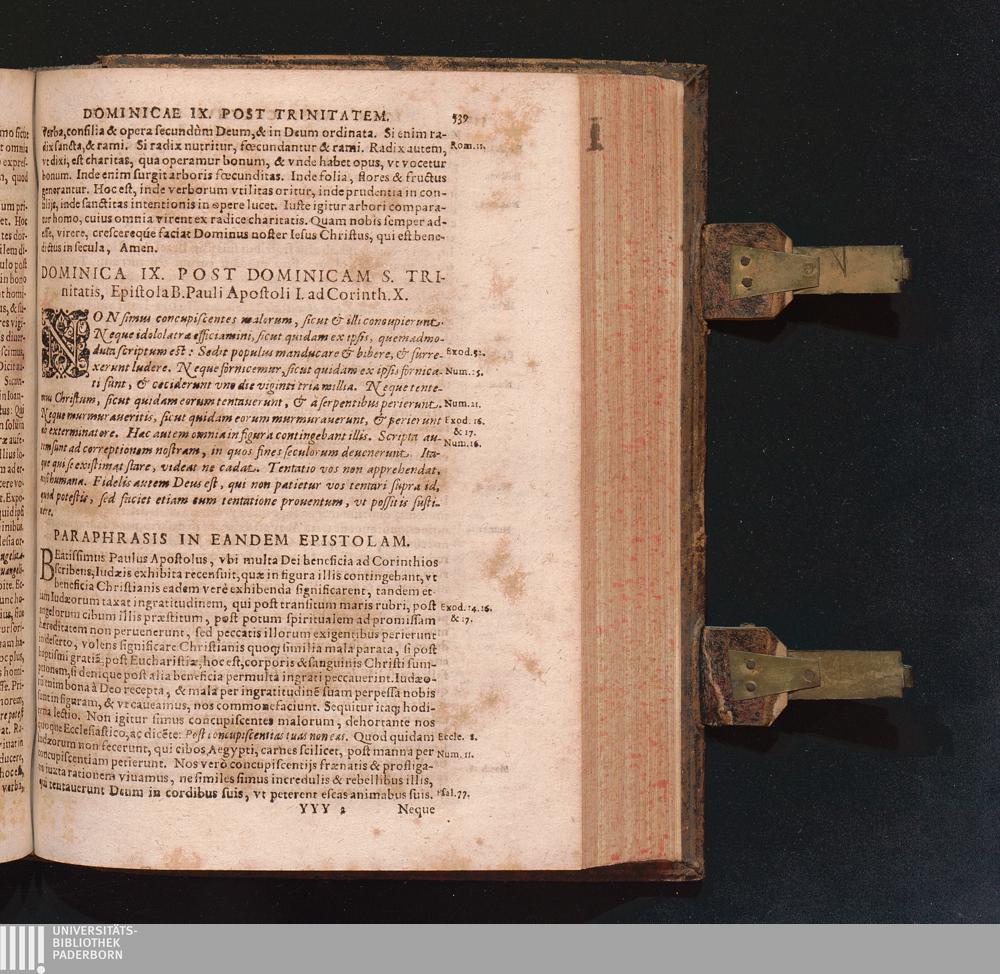 DOMINICAE IX. POST TRINITATEM. 539
verba, consilia & opera secundùm Deum, & in Deum ordinata. Si enim ra-
dix sancta, & rami. Si radix nutritur, fœcundantur & rami. Radix autem, Rom. 11.
vt dixi, est charitas, qua operamur bonum, & vnde habet opus, vt vocetur
bonum. Inde enim surgit arboris fœcunditas. Inde folia, flores & fructus
generantur. Hoc est, inde verborum vtilitas oritur, inde prudentia in con-
silijs, inde sanctitas intentionis in opere lucet. Iuste igitur arbori compara-
tur homo, cuius omnia virent ex radice charitatis. Quam nobis semper ad-
esse, virere, crescereque faciat Dominus noster Iesus Christus, qui est bene-
dictus in secula, Amen.
DOMINICA IX. POST DOMINICAM S. TRI-
nitatis, Epistola B. Pauli Apostoli I. ad Corinth. X.
NON simus concupiscentes malorum, sicut & illi concupierunt.
Neque idololatræ efficiamini, sicut quidam ex ipsis, quemadmo-
dum scriptum est: Sedit populus manducare & bibere, & surre- Exod. 32.
xerunt ludere. Neque fornicemur, sicut quidam ex ipsis fornica- Num. 25.
ti sunt, & ceciderunt vno die viginti tria millia. Neque tente-
mus Christum, sicut quidam eorum tentauerunt, & à serpentibus perierunt. Num. 21.
Neque murmuraueritis, sicut quidam eorum murmurauerunt, & perierunt Exod. 16.
ab exterminatore. Hac autem omnia in figura contingebant illis. Scripta au- & 17.
tem sunt ad correptionem nostram, in quos fines seculorum deuenerunt. Ita- Num. 16.
que qui se existimat stare, videat ne cadat. Tentatio vos non apprehendat,
nisi humana. Fidelis autem Deus est, qui non patietur vos tentari supra id,
quod potestis, sed faciet etiam cum tentatione prouentum, vt possitis susti-
nere.
PARAPHRASIS IN EANDEM EPISTOLAM.
BEatissimus Paulus Apostolus, vbi multa Dei beneficia ad Corinthios
scribens, Iudæis exhibita recensuit, quæ in figura illis contingebant, vt
beneficia Christianis eadem verè exhibenda significarent, tandem et-
iam Iudæorum taxat ingratitudinem, qui post transitum maris rubri, post Exod. 14. 16.
angelorum cibum illis præstitum, post potum spiritualem ad promissam & 17.
hæreditatem non peruenerunt, sed peccatis illorum exigentibus perierunt
in deserto, volens significare Christianis quoq; similia mala parata, si post
baptismi gratiã, post Eucharistiæ, hoc est, corporis & sanguinis Christi sum-
ptionem, si denique post alia beneficia permulta ingrati peccauerint. Iudæo-
rum enim bona à Deo recepta, & mala per ingratitudinẽ suam perpessa nobis
sunt in figuram, & vt caueamus, nos commonefaciunt. Sequitur itaq; hodi-
erna lectio. Non igitur simus concupiscentes malorum, dehortante nos
quoque Ecclesiastico, ac dicẽte: Post concupiscentias tuas non eas. Quod quidam Eccle. 8.
Iudæorum non fecerunt, qui cibos Aegypti, carnes scilicet, post manna per Num. 11.
concupiscentiam perierunt. Nos verò concupiscentijs frænatis & profliga-
tis iuxta rationem viuamus, ne similes simus incredulis & rebellibus illis,
qui tentauerunt Deum in cordibus suis, vt peterent escas animabus suis. Psal. 77.
YYY 2 Neque
UNIVERSITÄTS-
BIBLIOTHEK
PADERBORN